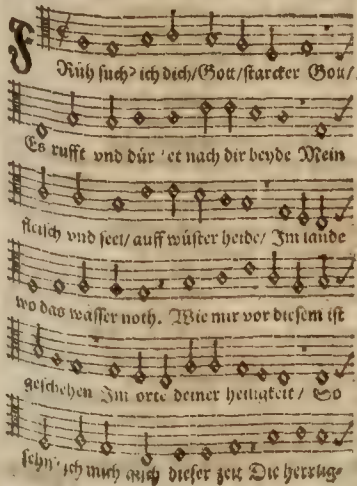 Früh such' ich dich/Gott/starcker Gott/
Es rufft vnd dür et nach dir beyde Mein
fleisch vnd seel/ auff wüster heide/ Im lande
wo das wasser noth. Wie mir vor diesem ist
geschehen Im orte deiner heiligkeit/ So
sehn' ich mich auch dieser zeit Die herrlig-